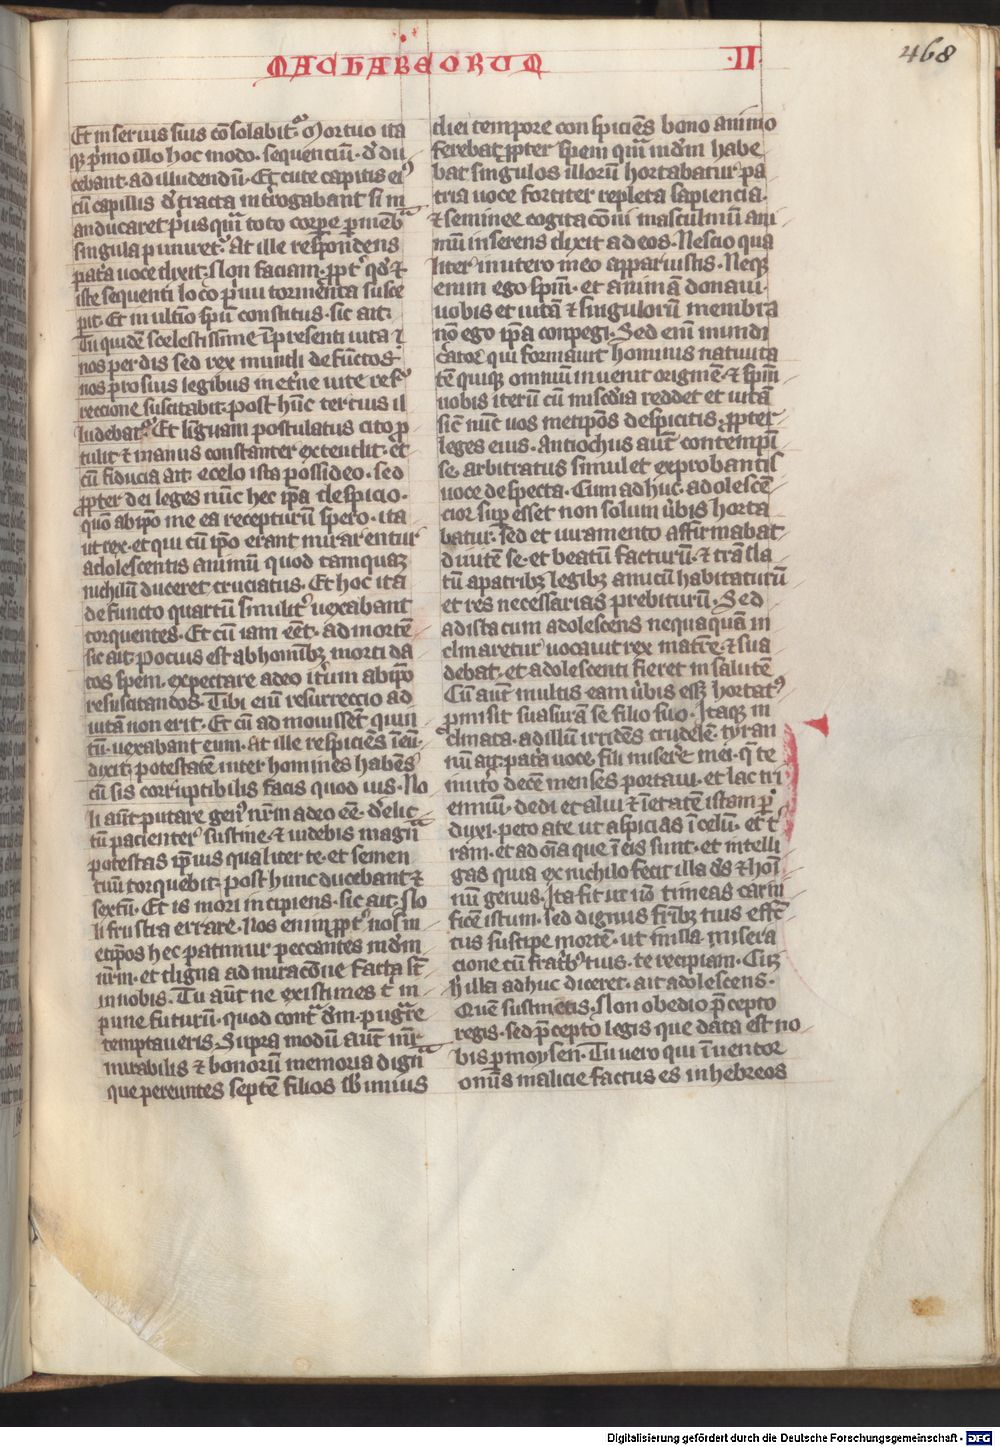 MACHABEORUM
·II·
468
Et in servus suis cōsolabit᷑. Mortuo ita
qꝫ p̄mo illo hoc modo. sequencium. d̄ du
cebant. ad illudendū. Et cute capitis eiꝰ
cū capillis d̄tracta int̄rogabant si m
anducaret pͥus qm̄ toto corpe p mēbᵃ
singula puniret᷑. At ille respondens
patͥa uoce dixit. Non faciam. ppt̄ qd̄ ⁊
iste sequenti loco pͥmi tormenta susce
pit. Et in ultīo spū constitus. sic ait.
Tu quidē scelestissime ī presenti uita
nos perdis sed rex mundi defūctos
nos pro suis legibus in et̄ne uite resᷓ
reccione suscitabit. Post hūc tertius il
luditᷣ. Et linguam postulatus cito p
tulit ⁊ manus constanter extendit. et
cū fiducia ait. e celo ista possideo. sed
ꝓpter dei leges nūc hec ip̄a despicio.
quō ab ip̄o me ea recepturū spero. ita
ut rex. et qui cū ip̄o erant mirarentur
adolescentis animū quod tamquaꝫ
nichilū duceret cruciatus. Et hoc ita
defuncto quartū similitᷣ uexabant
torquentes. Et cū iam eēt. ad mortē
sic ait. Pocius est ab hominibꝫ morti da
tos spem. expectare a deo it̄um ab ip̄o
resuscitandos. Tibi eniī resurreccio ad
uitā non erit. Et cū admouissēt quin
tū. uexabant eum. At ille respiciēs ī eū.
dixit. potestatē inter homines habēs
cū sis corruptibilis facis quod uis. No
li aūt putare genꝰ nr̄m a deo eē. d̄elic
tū pacienterᷣ sustine. ⁊ uidebis magnᵃ
potestas ip̄ius qualiter te. et semen
tuū torquebit. Post hunc ducebant ⁊
sextū. Et is mori incipiens. sic ait. No
li frustra errare. Nos enim ppt̄ nosm
etip̄os hec patimur peccantes in dm̄
nr̄m. et digna admiracōne facta sūt
in nobis. Tu aūt ne existimes t̄ im
pune futurū. quod contᷓ dm̄ pugᷓre
temptaueris. Supra modū aūt mr̄
mirabilis ⁊ bonorū memoria dignᷓ
que pereuntes septē filios sb̄ unius
diei tempore conspiciēs bono animo
ferebat ꝓpter spem qm̄ in dm̄ habe
bat singulos illorū hortabaturᷣ pa
tria uoce fortiter repleta sapiencia.
⁊ feminee cogitacōni masculinū ani
mū inserens dixit ad eos. Nescio qua
liter in utero meo apparuistis. Neqꝫ
enim ego spm̄. et animā donaui.
uobis et uitā ⁊ singulorū membra
nō ego ip̄a conpegi. Sed eniī mundi
c̄ator qui formauit hominis natiuita
tē quiqꝫ omniū inuenit originē. ⁊ spm̄
uobis iterū cū misc̄dia reddet et uitā
sicͭ nūc uos metip̄os despicitis. ꝓpter
leges eius. Antiochus aūt contempni
se. arbitratus simul et exprobantis
uoce despecta. Cum adhuc. adolescē
cior suꝑ esset non solum u̇bis horta
batur. sed et iuramento affirmabat
diuitē se. et beatū facturū. ⁊ trāsla
tū a patribꝫ legibꝫ amicū habitaturū
et res necessarias prebiturū. Sed
ad ista cum adolescens nequaquā in
clinareturᷣ uocauit rex matrē. ⁊ sua
debat. et adolescenti fieret in salutē
Cū aūt multis eam u̇bis eēꝫ hortatꝰ
ꝓmisit suasurā se filio suo. Itaqꝫ in
clinata. ad illū irridēs crudelē tyran
nū ait. patᷓa uoce. fili miserere mei. q̄ te
in ut̄o decē menses portaui. et lac tri
enniū. dedi et alui ⁊ ī etatē istam ꝑ
duxi. peto a te ut aspicias ī celū. et tᷣ
ram. et ad oīa que ī eis sunt. et intelli
gas quia ex nichilo fecit illa ds̄ ⁊ hoī
nū genus. Ita fit ut nō timeas carni
ficē istum. sed dignus fr̄ibꝫ tuis effcͭ
tus suscipe mortē. ut in illa misera
cione cū fratribꝰ tuis. te recipiam. Cūꝫ
h̄ illa adhuc diceret. ait adolescens.
Quē sustinetis. Non obedio p̄cepto
regis. sed p̄cepto legis que data est no
bis p moysen. Tu uero qui īuentor
omīs malicie factus es in hebreos
Digitalisierung gefördert durch die Deutsche Forschungsgemeinschaft - DFG